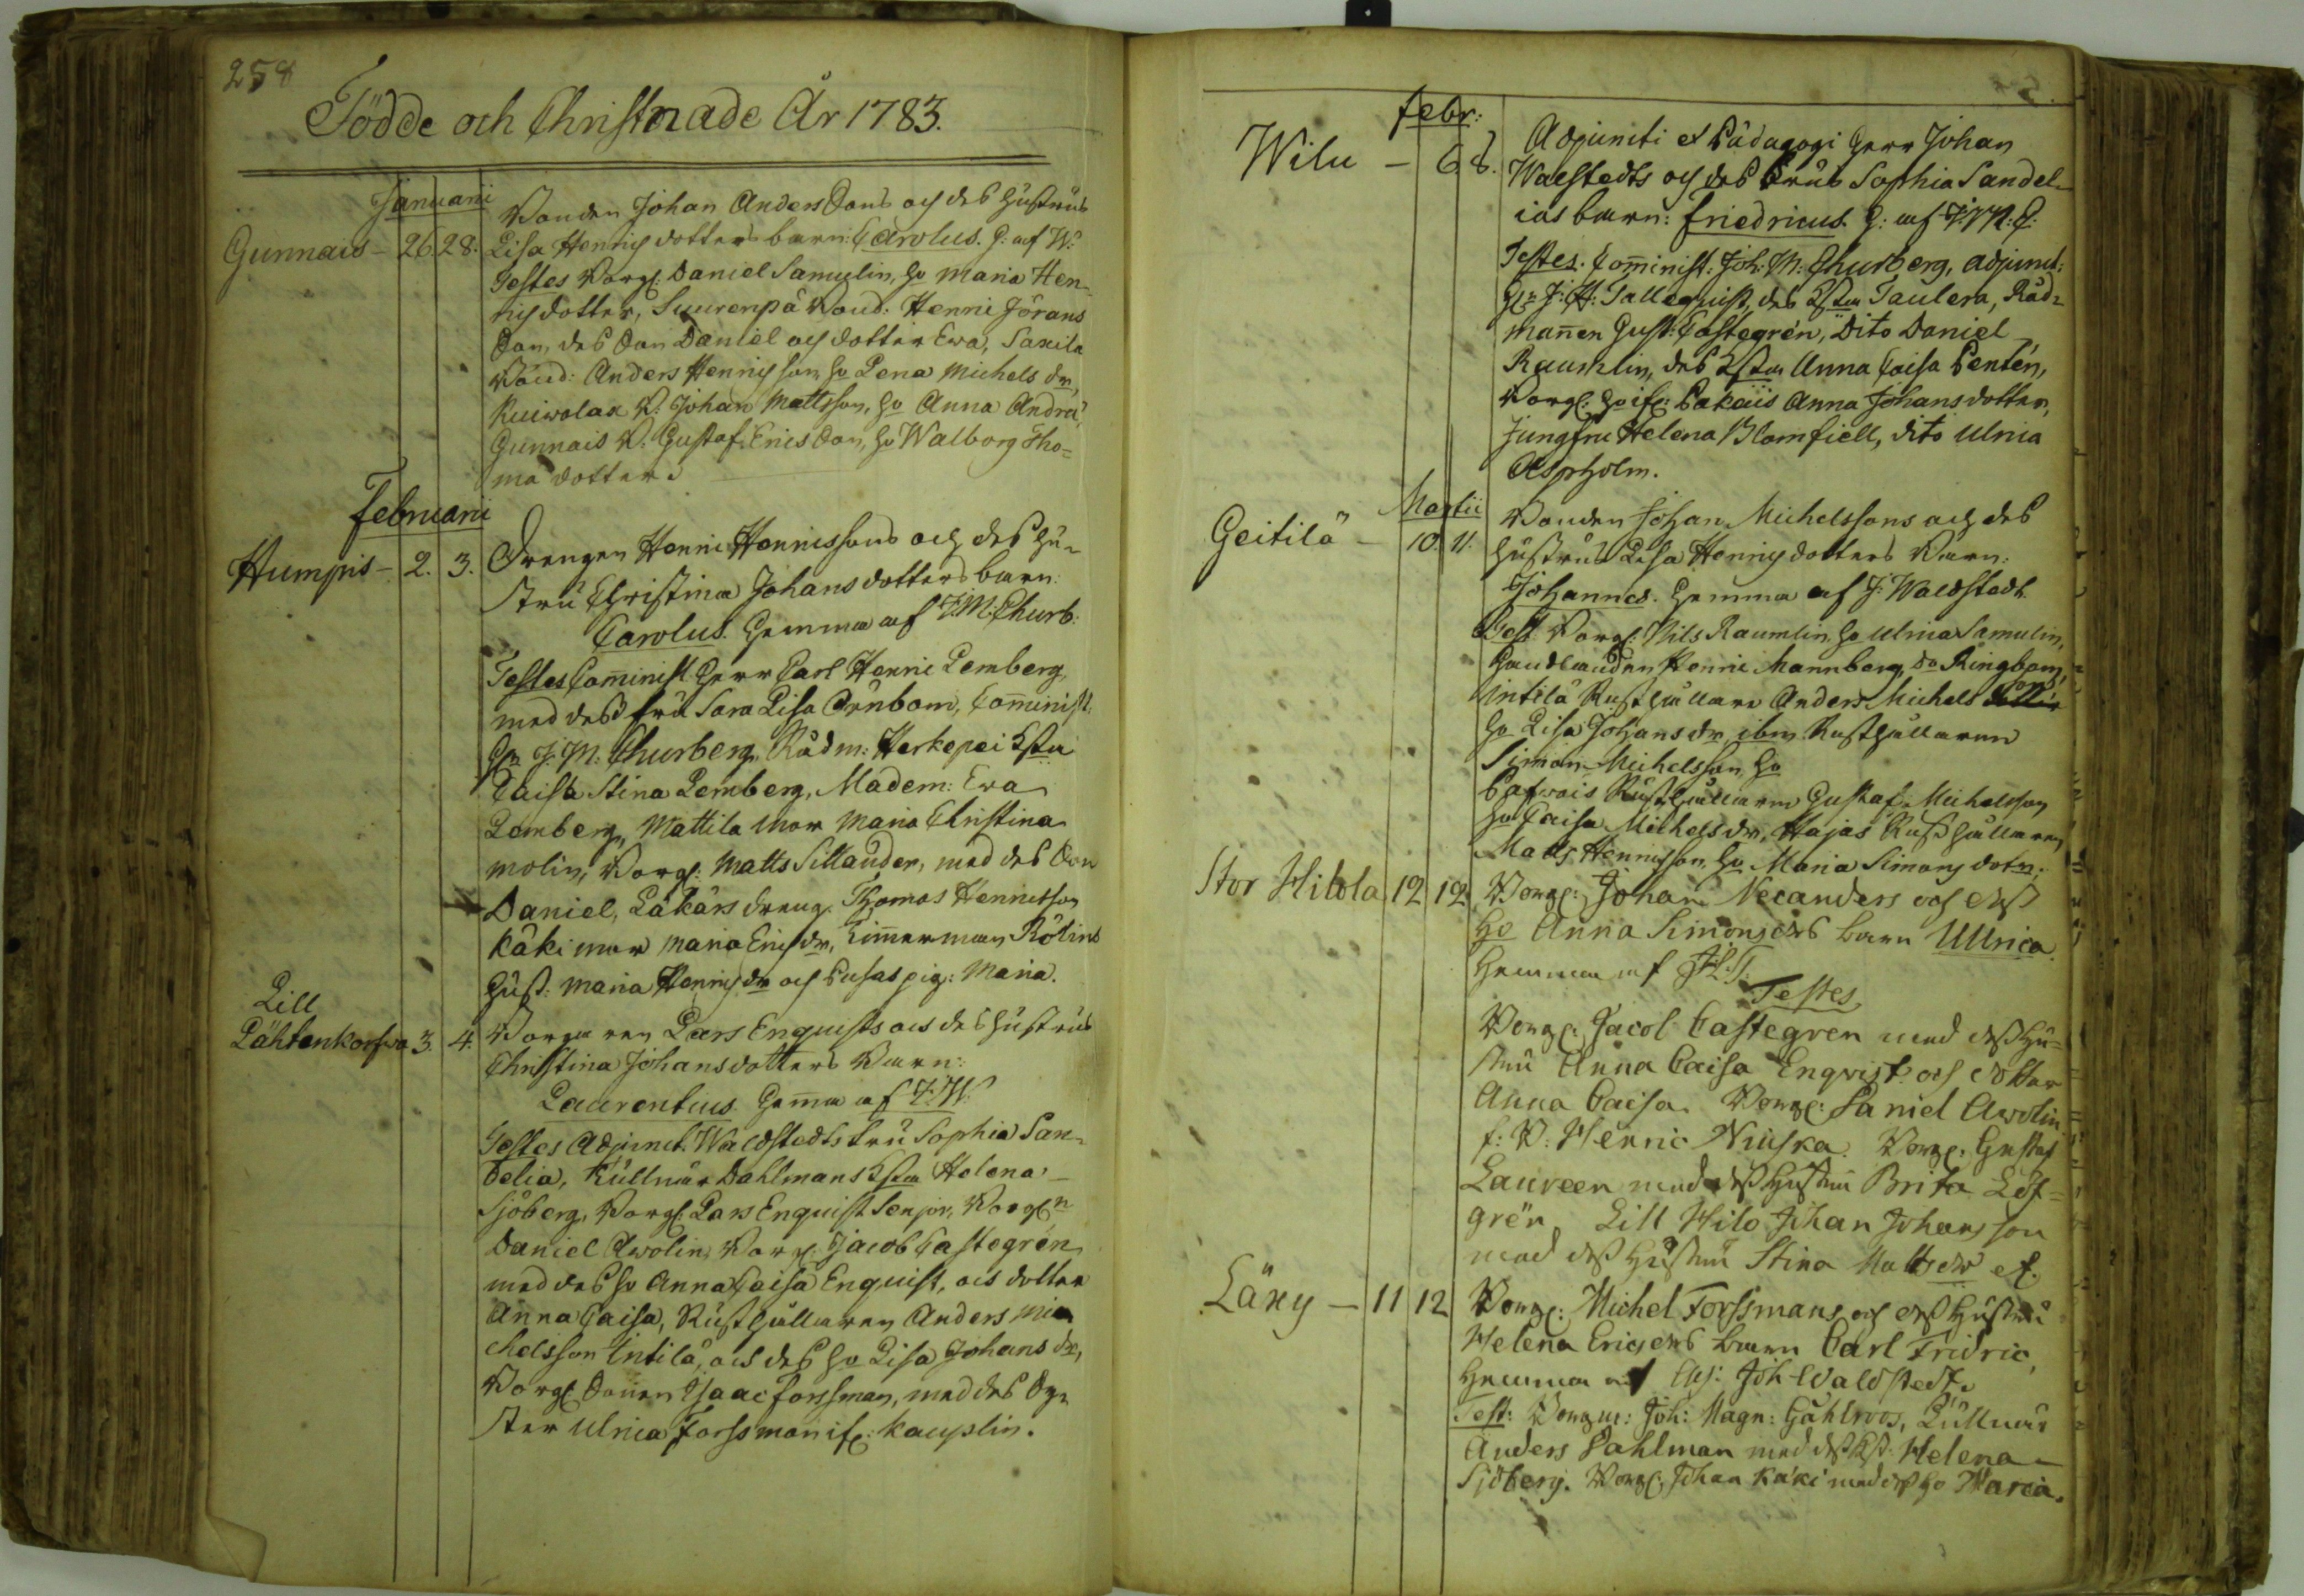 258
Födde och Christnade År 1783.
Januarii
Gunnais - 26. 28. Bonden Johan Anders Sons och des hustrus
Lisa Henrics dotters barn: Carolus. G: af W:
Testes Borg: Daniel Samulin, ho Maria Hen-
rics dotter, Suurenpä Bond: Henric Jörans
Son, des Son Daniel och dotter Ewa, Saxila
Bond: Anders Henricsson ho Lena Michels dr,
Kuiwolax B. Johan Mattsson, ho Anna Andrä
Gunnais B. Gustaf Erics Son, ho Walborg Tho-
mæ dotter.
Februarii
Humpis - 2. 3. Drengen Henric Henricssons och des hu-
stru Christina Johans dotters barn:
Carolus. Hemma af J.M. Churb:
Testes Comminist: Herr Carl Henric Lemberg,
med dess fru Sara Lisa Örnbom, Comminist:
Hr J. M. Churberg, Rådm: Herkepei Hstu
Caisa Stina Lemberg, Madem: Ewa
Lemberg, Mattila mor Maria Christina
Molin, Borg: Matts Sillander, med des Son
Daniel, Läkärs dreng. Thomas Henricsson
Käki mor Maria Erics dr, Timmerman Rölins
Hust: Maria Henrics dr och Pusas pig: Maria.
Lill
Lähtenkorfwa 3. 4. Borgaren Lars Enquists och des hustrus
Christina Johans dotters Barn:
Laurentius. Hemma af J:W:
Testes Adjunct. Waldstedts fru Sophia San-
delia, Tullnär Dahlmans Hstru Helena
Sjöberg, Borg: Lars Enquist Senior, Borg:n
Daniel Awolin, Borg: Jacob Castegrén
med des ho Anna Caisa Enquist, och dotter
Anna Caisa, Rusthållaren Anders Mi-
chelsson Intilä, och des ho Lisa Johans dr,
Borg: Sonen Isaac Forssman, med des Sy-
ster Ulrica Forssman if: Kauplin.
Febr:
Wilu - 6. 8. Adjuncti et Pädagogi Herr Johan
Walstedts och des Frus Sophia Sandel-
ias barn: Friedricus. G: af J: M: C:
Testes. Comminist: Joh: M: Churberg, adjunct:
Hr J: H: Tallequist, des Hstru Taulera, Råd-
mannen Gust: Castegrén, Dito Daniel
Raumlin, des Hstru Anna Caisa Pentén,
Borg: Pakais Anna Johans dotter,
Jungfru Helena Blomfiell, dito Ulrica
Aspholm.
Martii
Geitilä - 10. 11. Bonden Johan Michelssons och des
hustrus Lisa Henrics dotters Barn:
Johannes. Hemma af J: Waldstedt.
Test. Borg: Nils Raumlin, ho Ulrica Samulin,
Handlanden Henric Mannberg, do Ringbom,
Intilä Rusthållare Anders Michels son
ho Lisa Johans dr, ibm Rusthållaren
Simon Michelsson ho
Pafwais Rusthållaren Gustaf Michelsson
ho Caisa Michels dr, Hajas Rusthållaren
Matts Henricsson, ho Maria Simons dotr.
Stor Hilola 12 12. Borg: Johan Necanders och dess
ho Anna Simons drs barn Ullrica
Hemma af J.H.T.
Testes
Borg: Jacob Castegren med dess hu-
stru Anna Caisa Enqvist och dotter
Anna Caisa. Borg: Daniel Awolin
f: B: Henric Niuska. Borg: Gustaf
Laureen med dess hustru Brita Löf-
grén, Lill Hilo Johan Johansson
med dess hustru Stina Matts dr et.
Läxy - 11 12 Borg: Michel Forssmans och dess hustru
Helena Erics drs barn Carl Fridric,
Hemma af Adj: Joh Waldstedt.
Test: Borgm: Joh: Magn: Gåhlroos, Tullnär
Anders Dahlman med dess Hst: Helena
Sjöberg. Borg: Johan Käki med dess ho Maria.